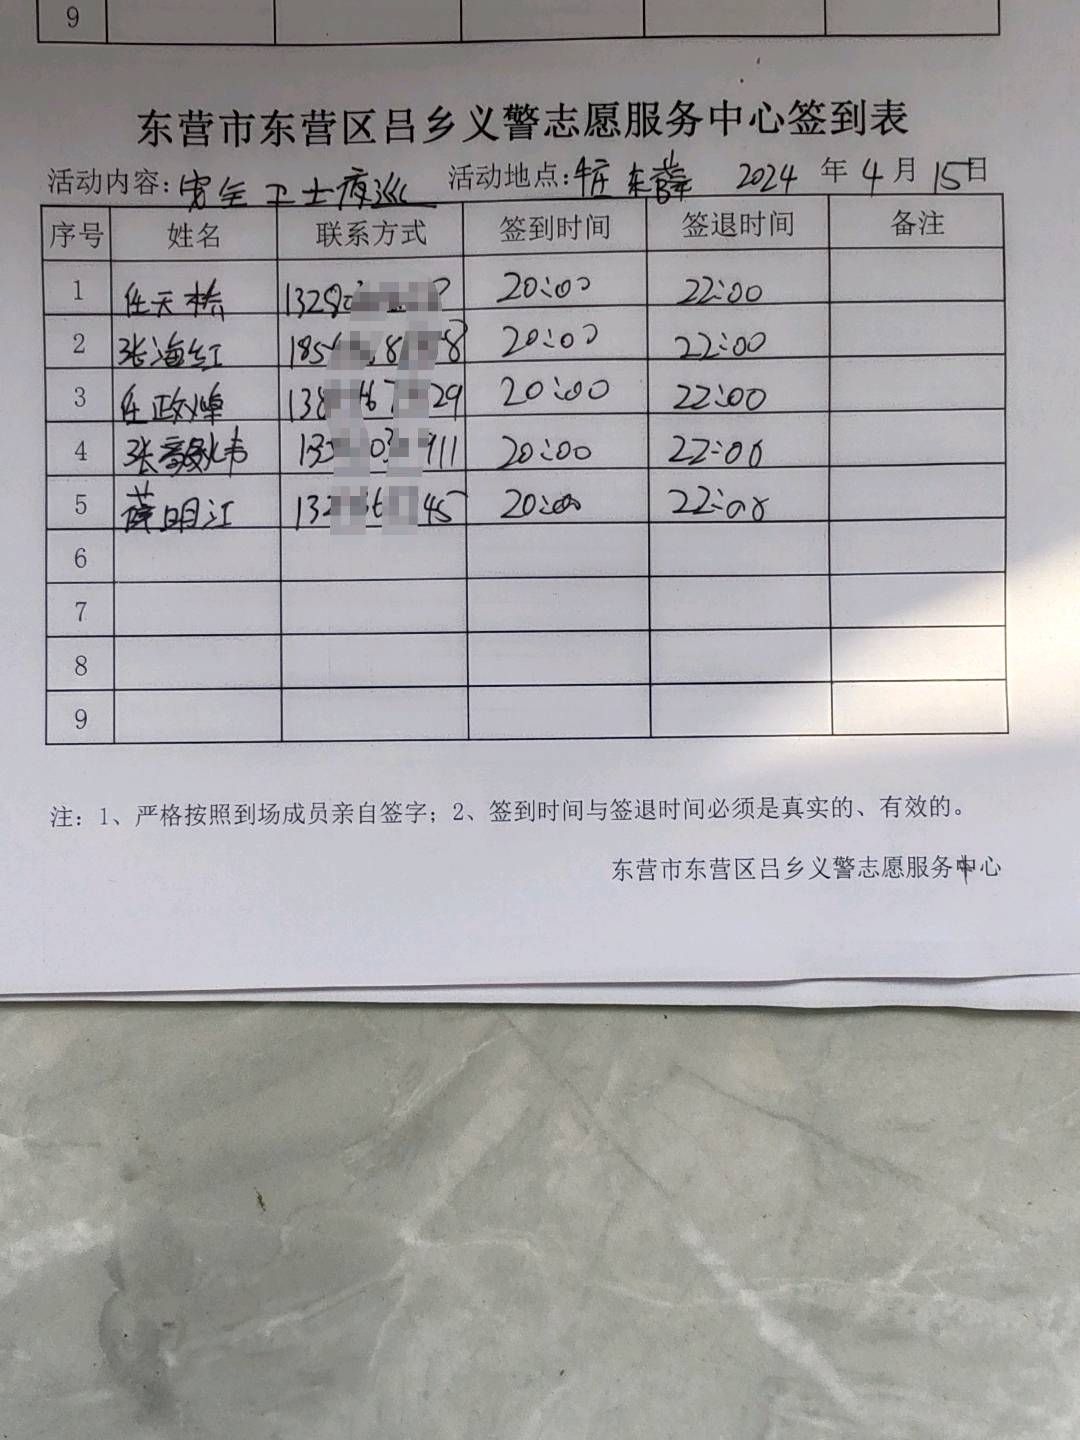 9
东营市东营区吕乡义警志愿服务中心签到表
活动内容:安全卫士夜巡 活动地点:牛庄东 2024年4月15日
序号 姓名 联系方式 签到时间 签退时间 备注
1 任天桥 20:00 22:00
2 张海红 20:00 22:00
3 任政焯 20:00 22:00
4 张 20:00 22:00
5 薛明江 20:00 22:00
6
7
8
9
注：1、严格按照到场成员亲自签字；2、签到时间与签退时间必须是真实的、有效的。
东营市东营区吕乡义警志愿服务中心